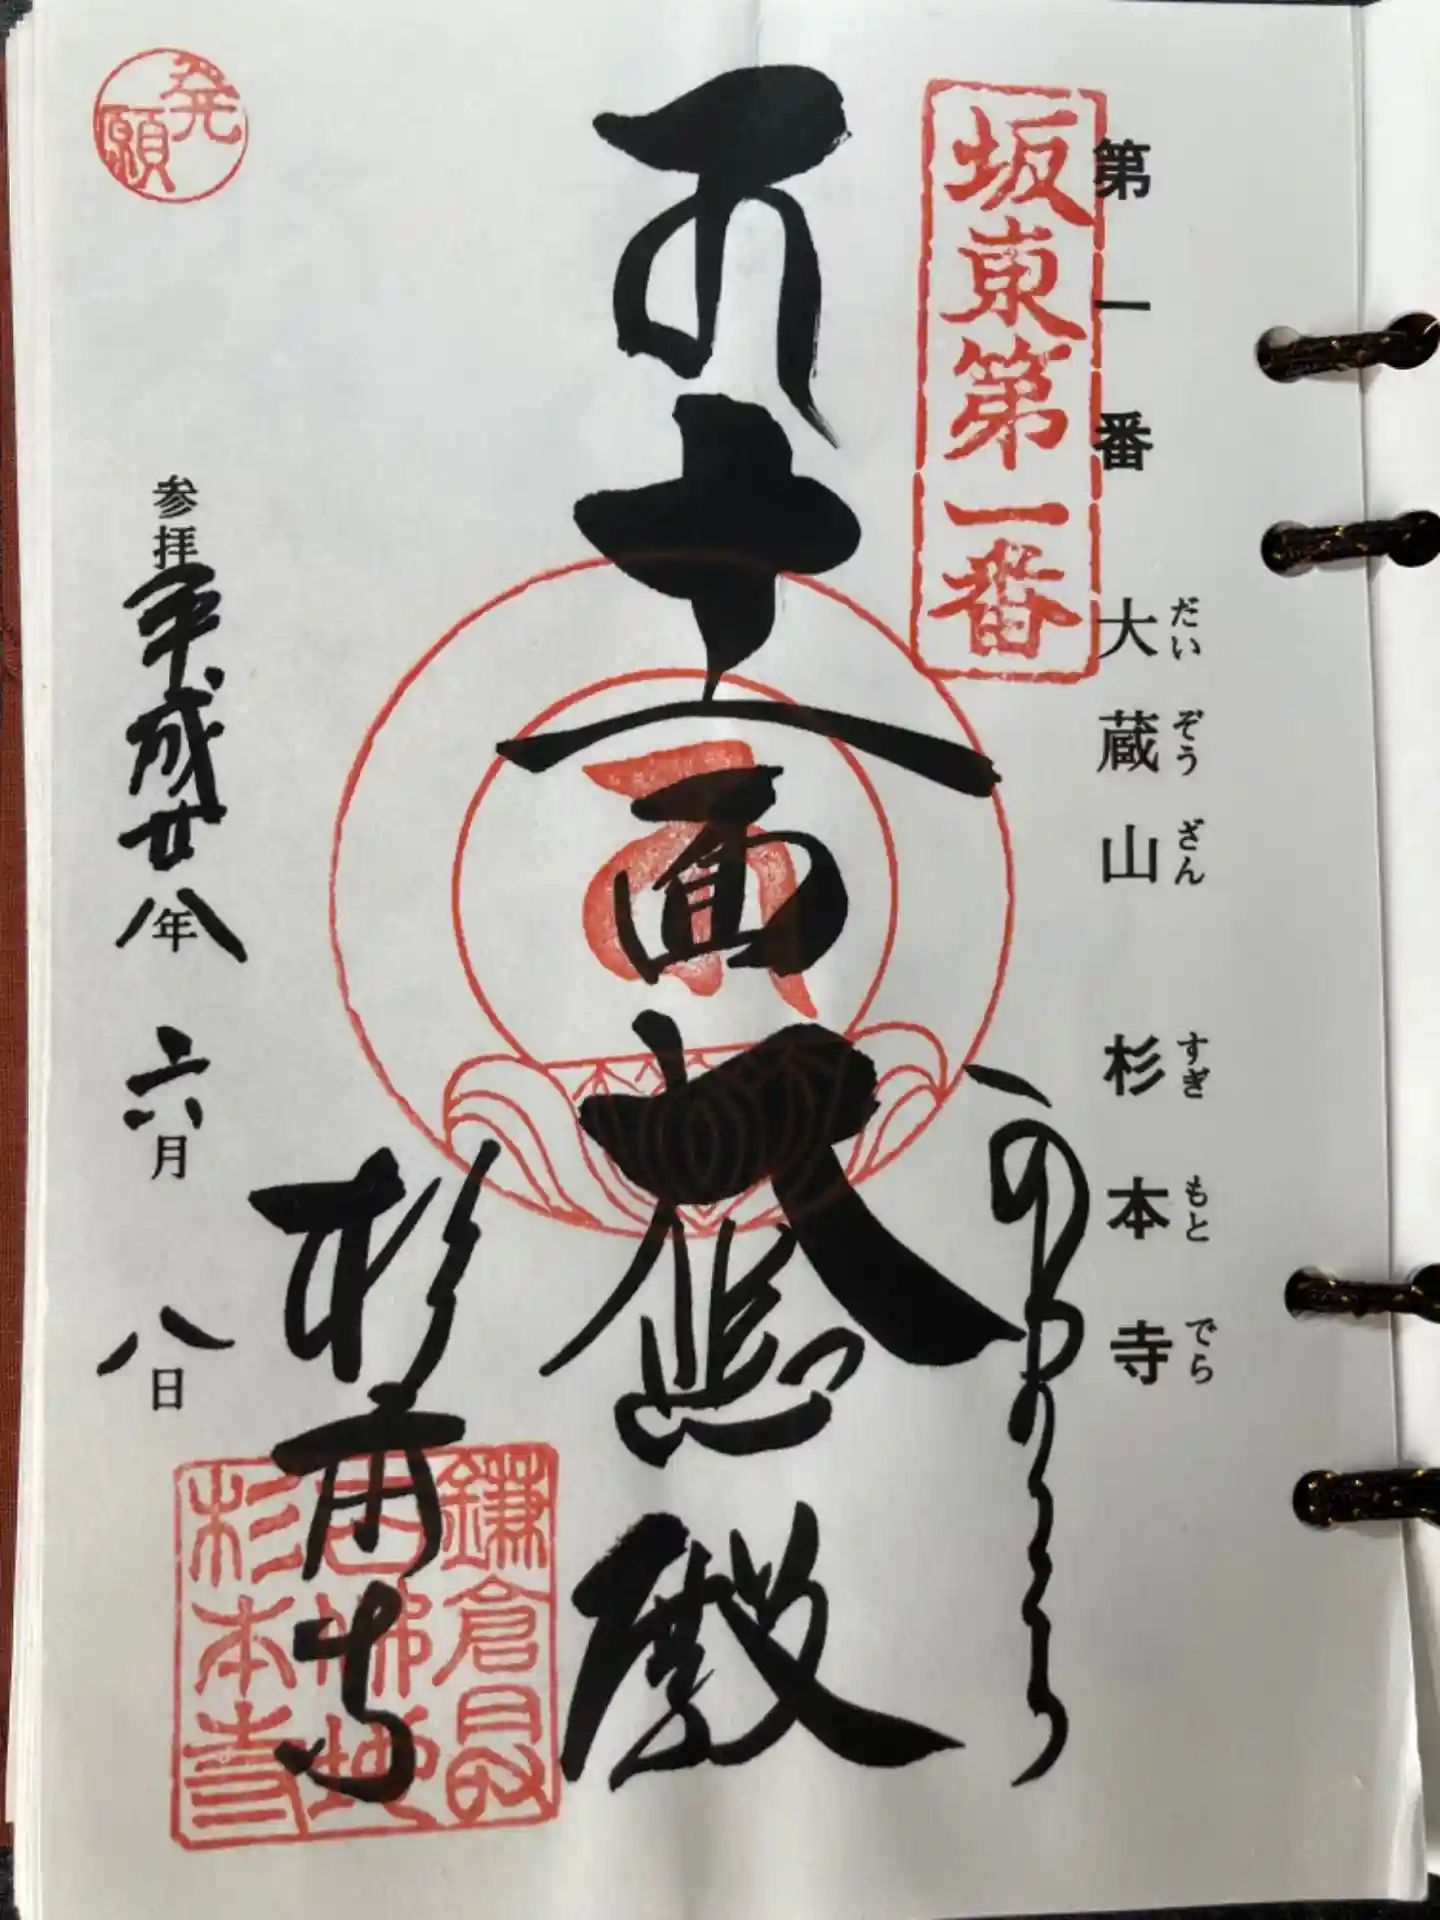 第一番 大蔵山 杉本寺
だいぞうざん すぎもとでら
坂東第一番
十一面大悲殿
杉本寺
鎌倉最
古佛地
杉本寺
発願
参拝 平成廿八年 六月 八日